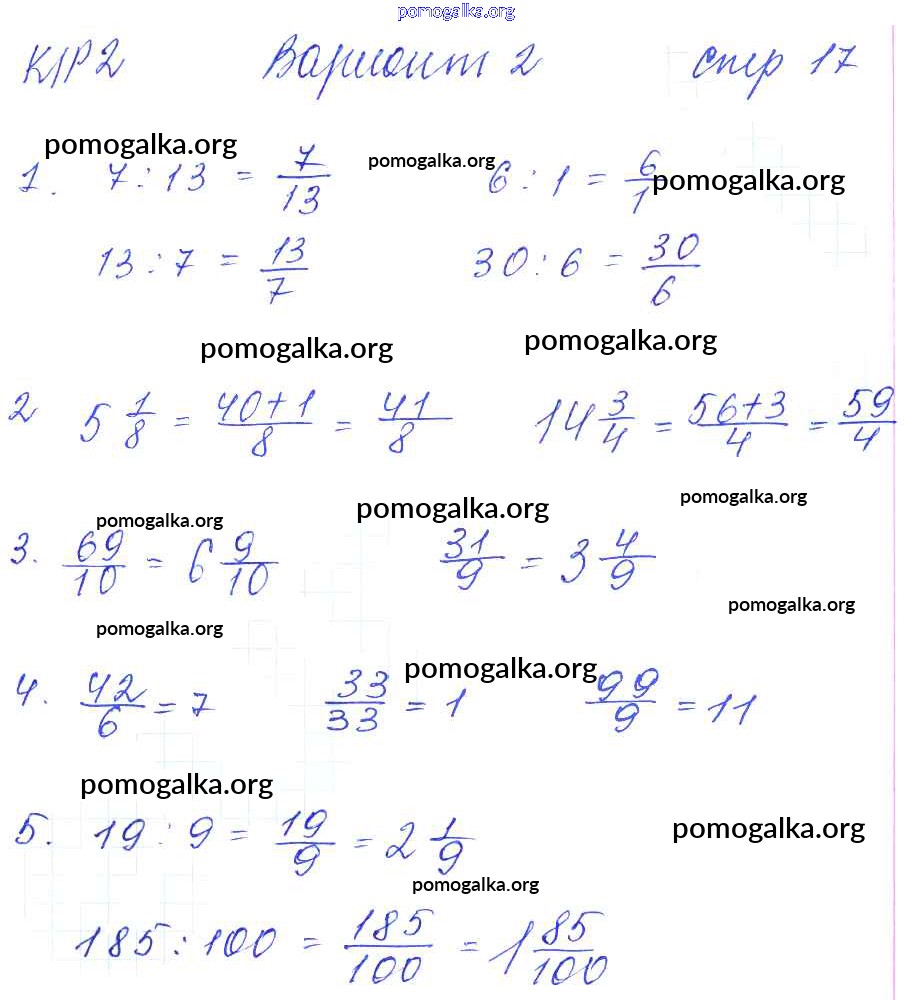 pomogalka.org
К/Р 2 Вариант 2 стр 17
pomogalka.org pomogalka.org pomogalka.org
1. 7 : 13 = 7/13 6 : 1 = 6/1
13 : 7 = 13/7 30 : 6 = 30/6
pomogalka.org pomogalka.org
2 5 1/8 = 40+1/8 = 41/8 14 3/4 = 56+3/4 = 59/4
pomogalka.org pomogalka.org pomogalka.org
3. 69/10 = 6 9/10 31/9 = 3 4/9
pomogalka.org
pomogalka.org pomogalka.org
4. 42/6 = 7 33/33 = 1 99/9 = 11
pomogalka.org
5. 19 : 9 = 19/9 = 2 1/9
pomogalka.org
pomogalka.org
185 : 100 = 185/100 = 1 85/100